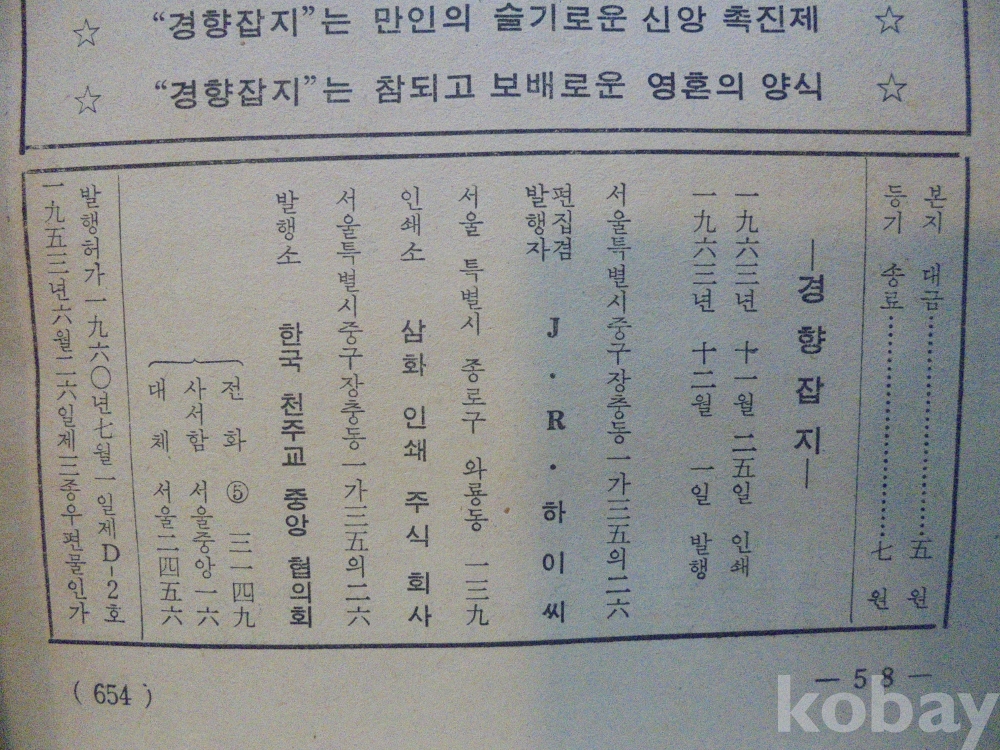 ☆ “경향잡지”는 만인의 슬기로운 신앙 촉진제 ☆
☆ “경향잡지”는 참되고 보배로운 영혼의 양식 ☆
본지 대금……………………五 원
등기 송료……………………七 원
―경 향 잡 지―
一九六三년 十一월 二五일 인쇄
一九六三년 十二월 一일 발행
서울특별시중구장충동一가三五의二六
편집겸
발행자 J·R·하 이 씨
서울 특별시 종로구 와룡동 一三九
인쇄소 삼화 인쇄 주식 회사
서울특별시중구장충동一가三五의二六
발행소 한국 천주교 중앙 협의회
전 화 ⑤ 三一四九
사서함 서울중앙一六
대 체 서울二四五六
발행허가一九六〇년七월一일제D-2호
一九五三년六월二六일제三종우편물인가
(654)
―58―
kobay